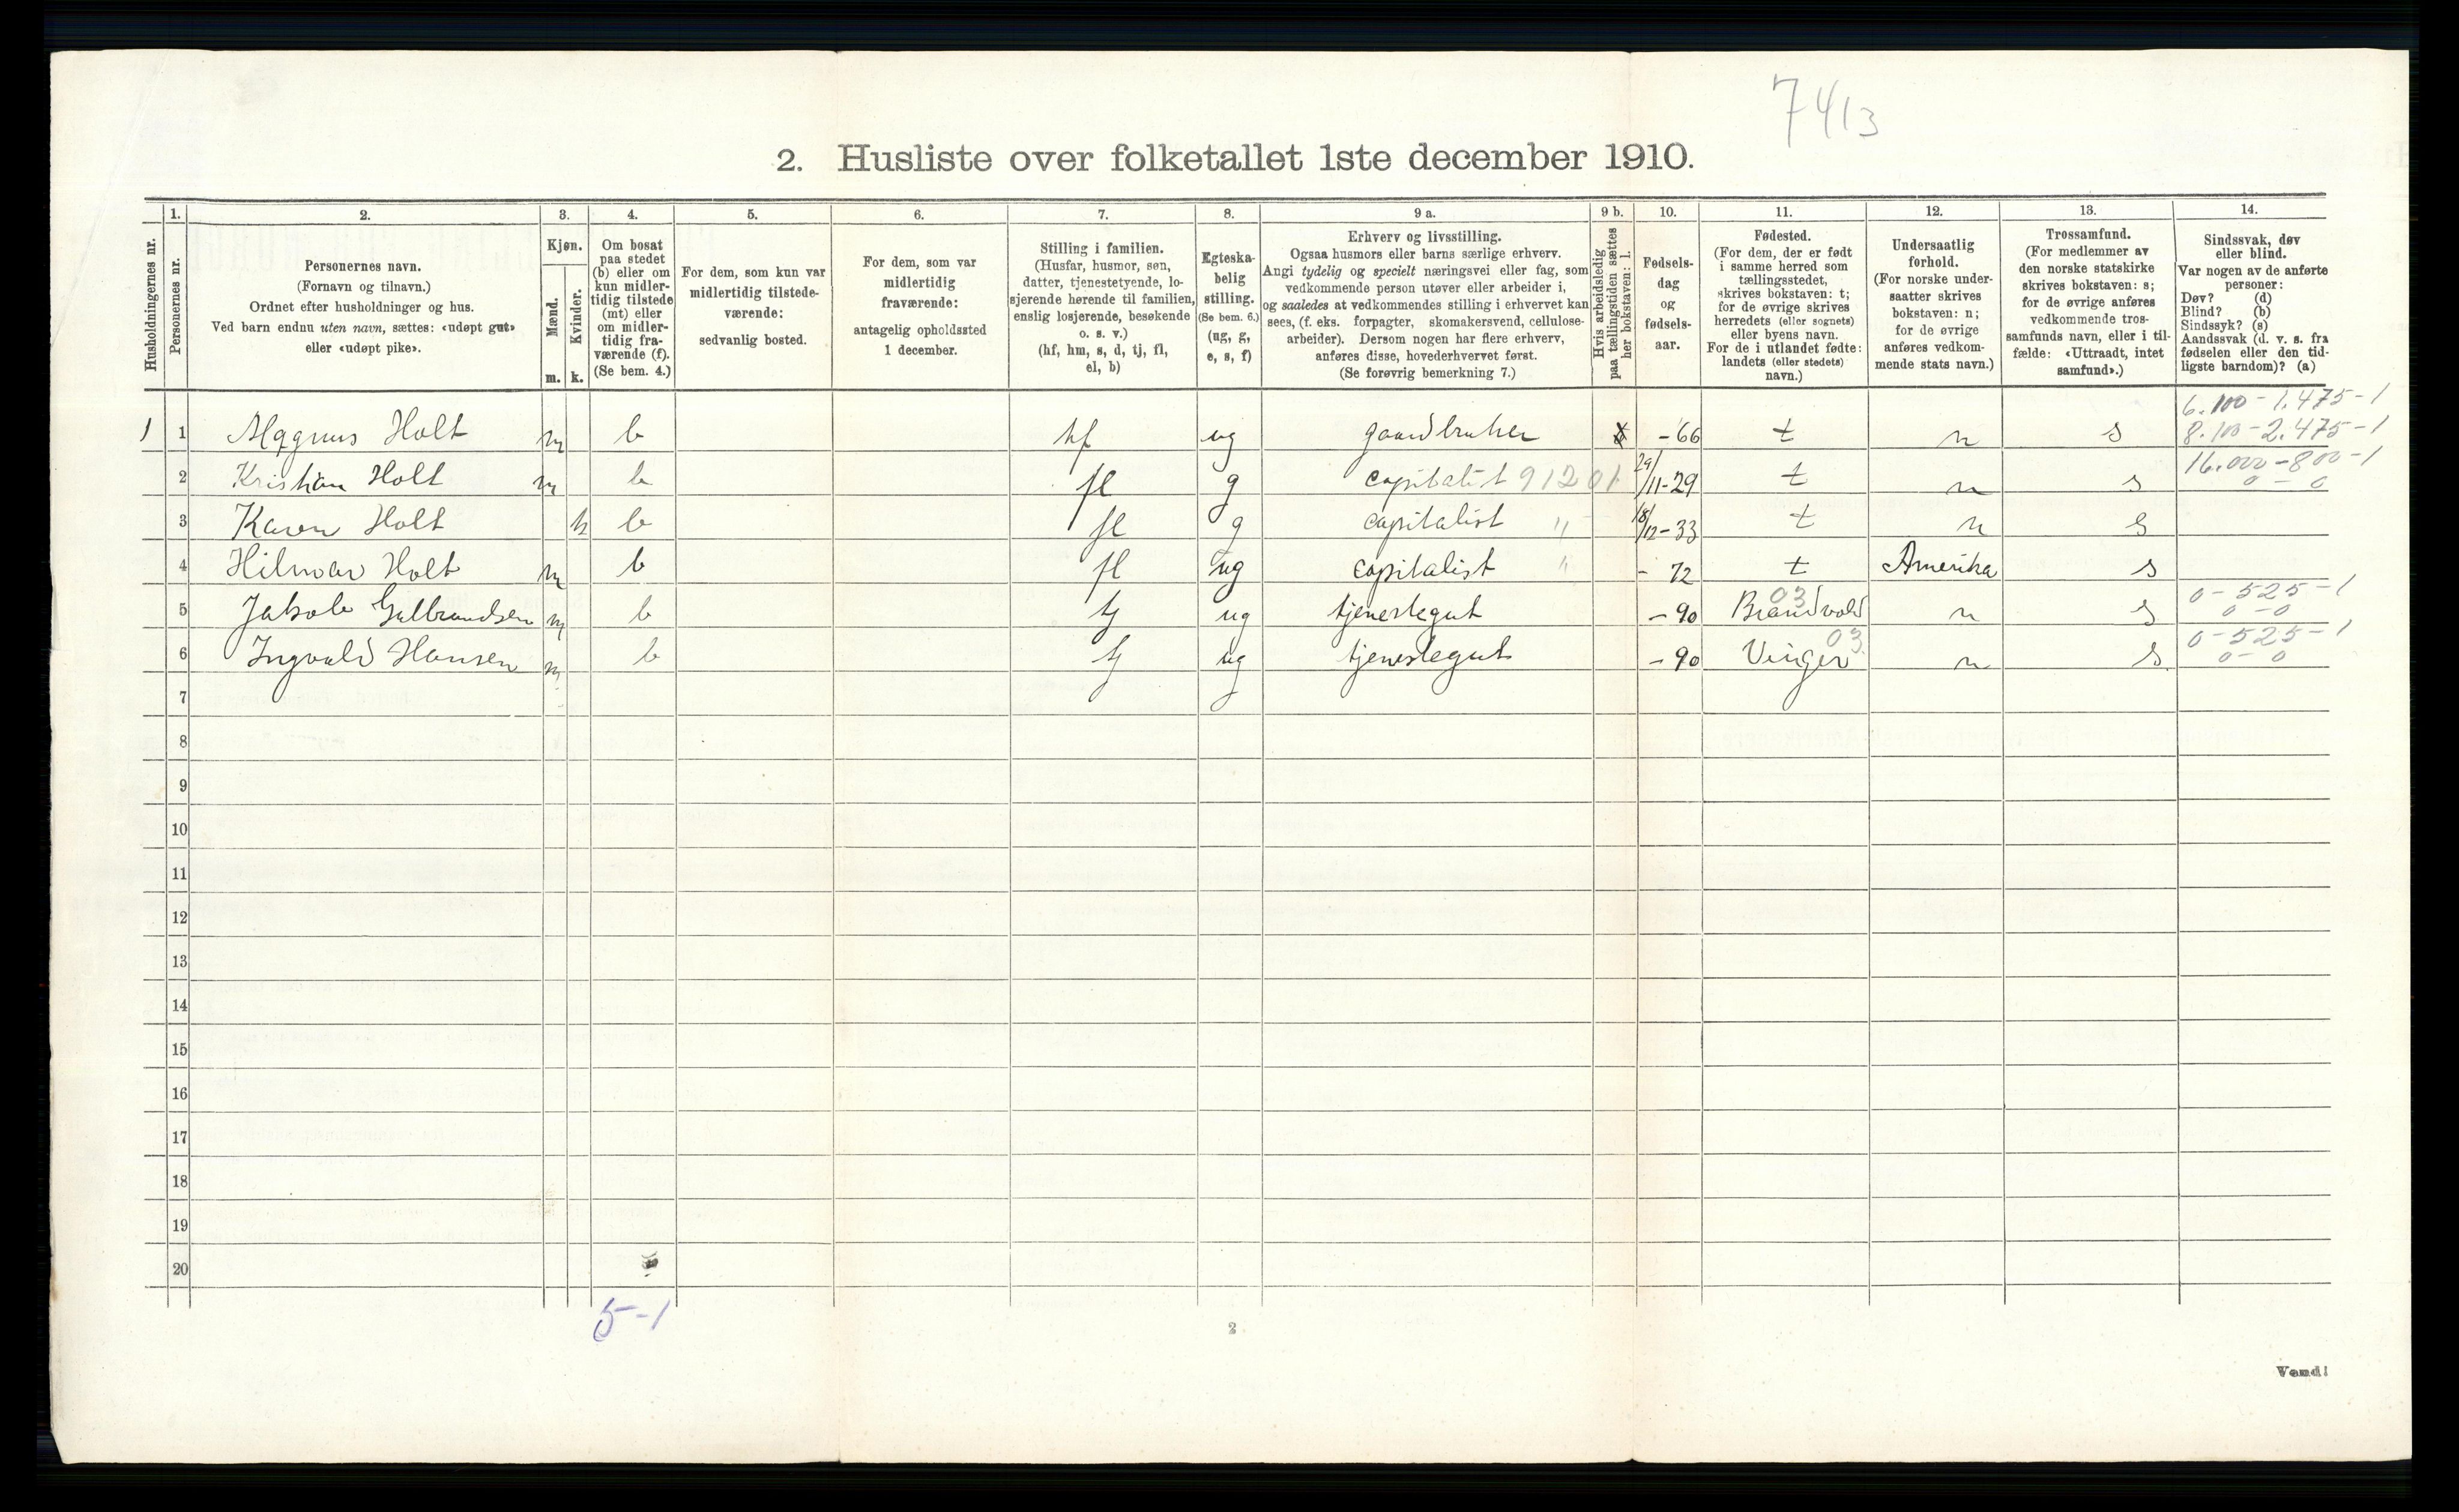 7413
2. Husliste over folketallet 1ste december 1910.
Husholdningernes nr.
1.
Personernes nr.
2.
Personernes navn.
(Fornavn og tilnavn.)
Ordnet efter husholdninger og hus.
Ved barn endnu uten navn, sættes: «udøpt gut»
eller «udøpt pike».
3.
Kjøn.
Mænd.
Kvinder.
m. k.
4.
Om bosat
paa stedet
(b) eller om
kun midler-
tidig tilstede
(mt) eller
om midler-
tidig fra-
værende (f).
(Se bem. 4.)
5.
For dem, som kun var
midlertidig tilstede-
værende:
sedvanlig bosted.
6.
For dem, som var
midlertidig
fraværende:
antagelig opholdssted
1 december.
7.
Stilling i familien.
(Husfar, husmor, søn,
datter, tjenestetyende, lo-
sjerende hørende til familien,
enslig losjerende, besøkende
o. s. v.)
(hf, hm, s, d, tj, fl,
el, b)
8.
Egteska-
belig
stilling.
(Se bem. 6.)
(ug, g,
e, s, f)
9 a.
Erhverv og livsstilling.
Ogsaa husmors eller barns særlige erhverv.
Angi tydelig og specielt næringsvei eller fag, som
vedkommende person utøver eller arbeider i,
og saaledes at vedkommendes stilling i erhvervet kan
sees, (f. eks. forpagter, skomakersvend, cellulose-
arbeider). Dersom nogen har flere erhverv,
anføres disse, hovederhvervet først.
(Se forøvrig bemerkning 7.)
9 b.
Hvis arbeidsledig
paa tællingstiden sættes
her bokstaven: l.
10.
Fødsels-
dag
og
fødsels-
aar.
11.
Fødested.
(For dem, der er født
i samme herred som
tællingsstedet,
skrives bokstaven: t;
for de øvrige skrives
herredets (eller sognets)
eller byens navn.
For de i utlandet fødte:
landets (eller stedets)
navn.)
12.
Undersaatlig
forhold.
(For norske under-
saatter skrives
bokstaven: n;
for de øvrige
anføres vedkom-
mende stats navn.)
13.
Trossamfund.
(For medlemmer av
den norske statskirke
skrives bokstaven: s;
for de øvrige anføres
vedkommende tros-
samfunds navn, eller i til-
fælde: «Uttraadt, intet
samfund».)
14.
Sindssvak, døv
eller blind.
Var nogen av de anførte
personer:
Døv? (d)
Blind? (b)
Sindssyk? (s)
Aandssvak (d. v. s. fra
fødselen eller den tid-
ligste barndom)? (a)
6.100-1.475-1
1 1 Magnus Holt m b hf ug gaardbruker -66 t n s 8.100-2.475-1
16.000-800-1
2 Kristian Holt m b fl g capitalist 91201 29/11-29 t n s 0-0
3 Karen Holt k b fl g capitalist " 18/12-33 t n s
4 Hilmar Holt m b fl ug capitalist " - 72 t Amerika s
03 0-525-1
5 Jakob Gulbrandsen m b tj ug tjenestegut -90 Brandvold n s 0-0
03 0-525-1
6 Ingvald Hansen m b tj ug tjenestegut -90 Vinger n s 0-0
7
8
9
10
11
12
13
14
15
16
17
18
19
20
5-1
2
Vend!